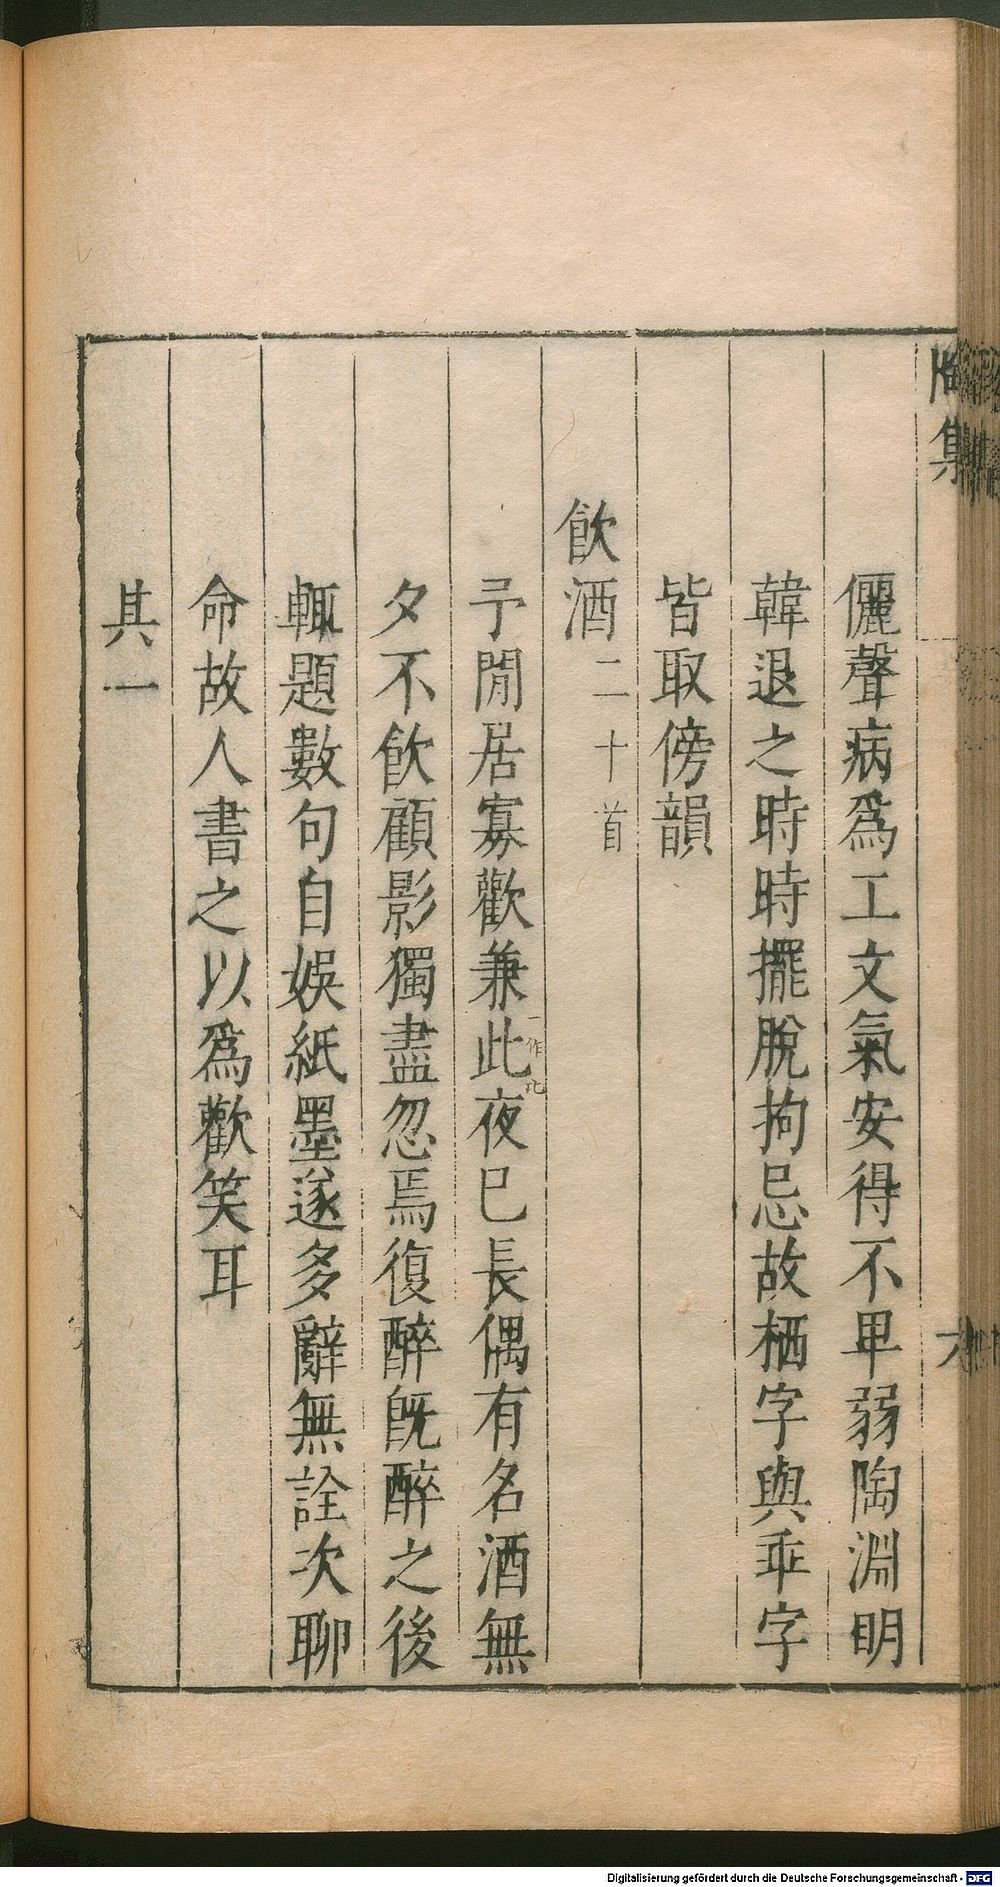 陶集
六
儷聲病爲工文氣安得不卑弱陶淵明
韓退之時時擺脫拘忌故栖字與乖字
皆取傍韻
飲酒二十首
予閒居寡歡兼此一作比夜已長偶有名酒無
夕不飲顧影獨盡忽焉復醉旣醉之後
輒題數句自娛紙墨遂多辭無詮次聊
命故人書之以爲歡笑耳
其一
Digitalisierung gefördert durch die Deutsche Forschungsgemeinschaft - DFG